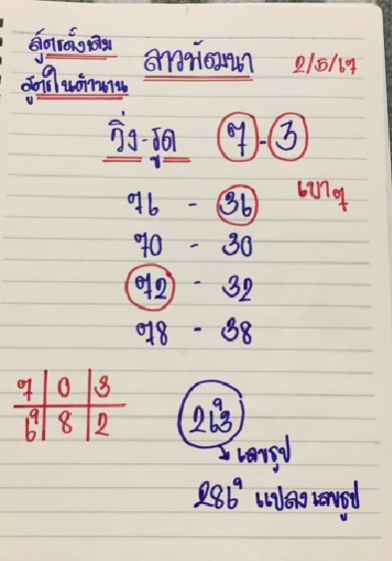 สูตรดั้งเดิม
สูตรในตำนาน
ลาวพัฒนา 2/5/67
วิ่ง-รูด 7-3
เบาๆ
76 - 36
70 - 30
72 - 32
78 - 38
7 0 3
6 8 2
263
เลขธูป
286 แปลงเลขธูป